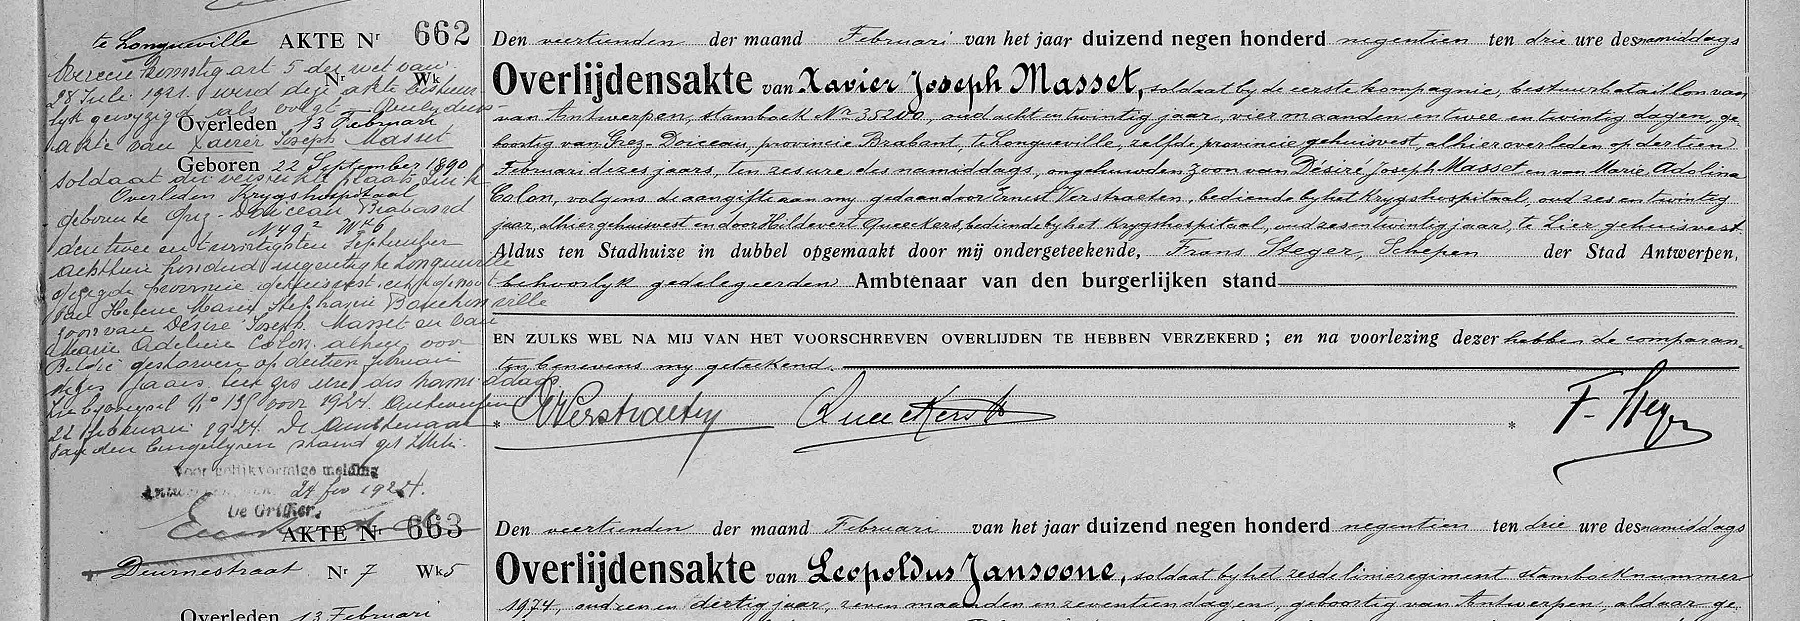 te Longueville AKTE Nr 662
Overeenkomstig art 5 der wet van
Nr Wk
28 Juli 1921 werd deze akte bestuur-
lijk gewijzigd als volgt
Overleden 13 Februari
akte van Xavier Joseph Masset
Geboren 22 September 1890
soldaat
Overleden Krygshospitaal
geboren te Grez-Doiceau Braband
N 49² Wk 6
den twee en twintigsten September
achttien honderd negentig te Longueville
gezegde provincie gehuisvest
van Helene Marie Stephanie
zoon van Désiré Joseph Masset en van
Marie Adeline Colon alhier voor
België gestorven op dertien februari
dezes jaars, ten zes ure des namiddags
Zie byvoegsel voor 1924. Antwerpen
22 februari 1924. De Ambtenaar
van den burgerlyken stand get
Voor gelijkvormige melding
Antwerpen, den 24 feb 1924.
De Griffier,
Den veertienden der maand Februari van het jaar duizend negen honderd negentien ten drie ure des namiddags
Overlijdensakte van Xavier Joseph Masset, soldaat by de eerste kompagnie, bestuurbataillon van
van Antwerpen, stamboek Nr 35200, oud acht en twintig jaar, vier maanden en twee en twintig dagen, ge-
boortig van Grez-Doiceau, provincie Brabant, te Longueville, zelfde provincie gehuisvest, alhier overleden op dertien
Februari dezes jaars, ten zes ure des namiddags, ongehuwden zoon van Désiré Joseph Masset en van Marie Adolina
Colon, volgens de aangifte aan my gedaan door Ernest Verstraeten, bediende by het Krygshospitaal, oud zes en twintig
jaar, alhier gehuisvest en door Hildevert Queeckers, bediende by het Krygshospitaal, oud zes en twintig jaar, te Lier gehuisvest.
Aldus ten Stadhuize in dubbel opgemaakt door mij ondergeteekende, Frans Steger, Schepen der Stad Antwerpen,
behoorlyk gedelegeerden Ambtenaar van den burgerlijken stand
EN ZULKS WEL NA MIJ VAN HET VOORSCHREVEN OVERLIJDEN TE HEBBEN VERZEKERD ; en na voorlezing dezer hebben de comparan-
ten benevens my geteekend.
* EVerstraeten Queeckers H * F. Steger
AKTE Nr 663
Deurnestraat Nr 7 Wk 5
Overleden 13 Februari
Den veertienden der maand Februari van het jaar duizend negen honderd negentien ten drie ure des namiddags
Overlijdensakte van Leopoldus Jansoone, soldaat by het zesde linieregiment stamboeknummer
1974, oud zes en dertig jaar, zeven maanden en zeventien dagen, geboortig van Antwerpen, aldaar ge-